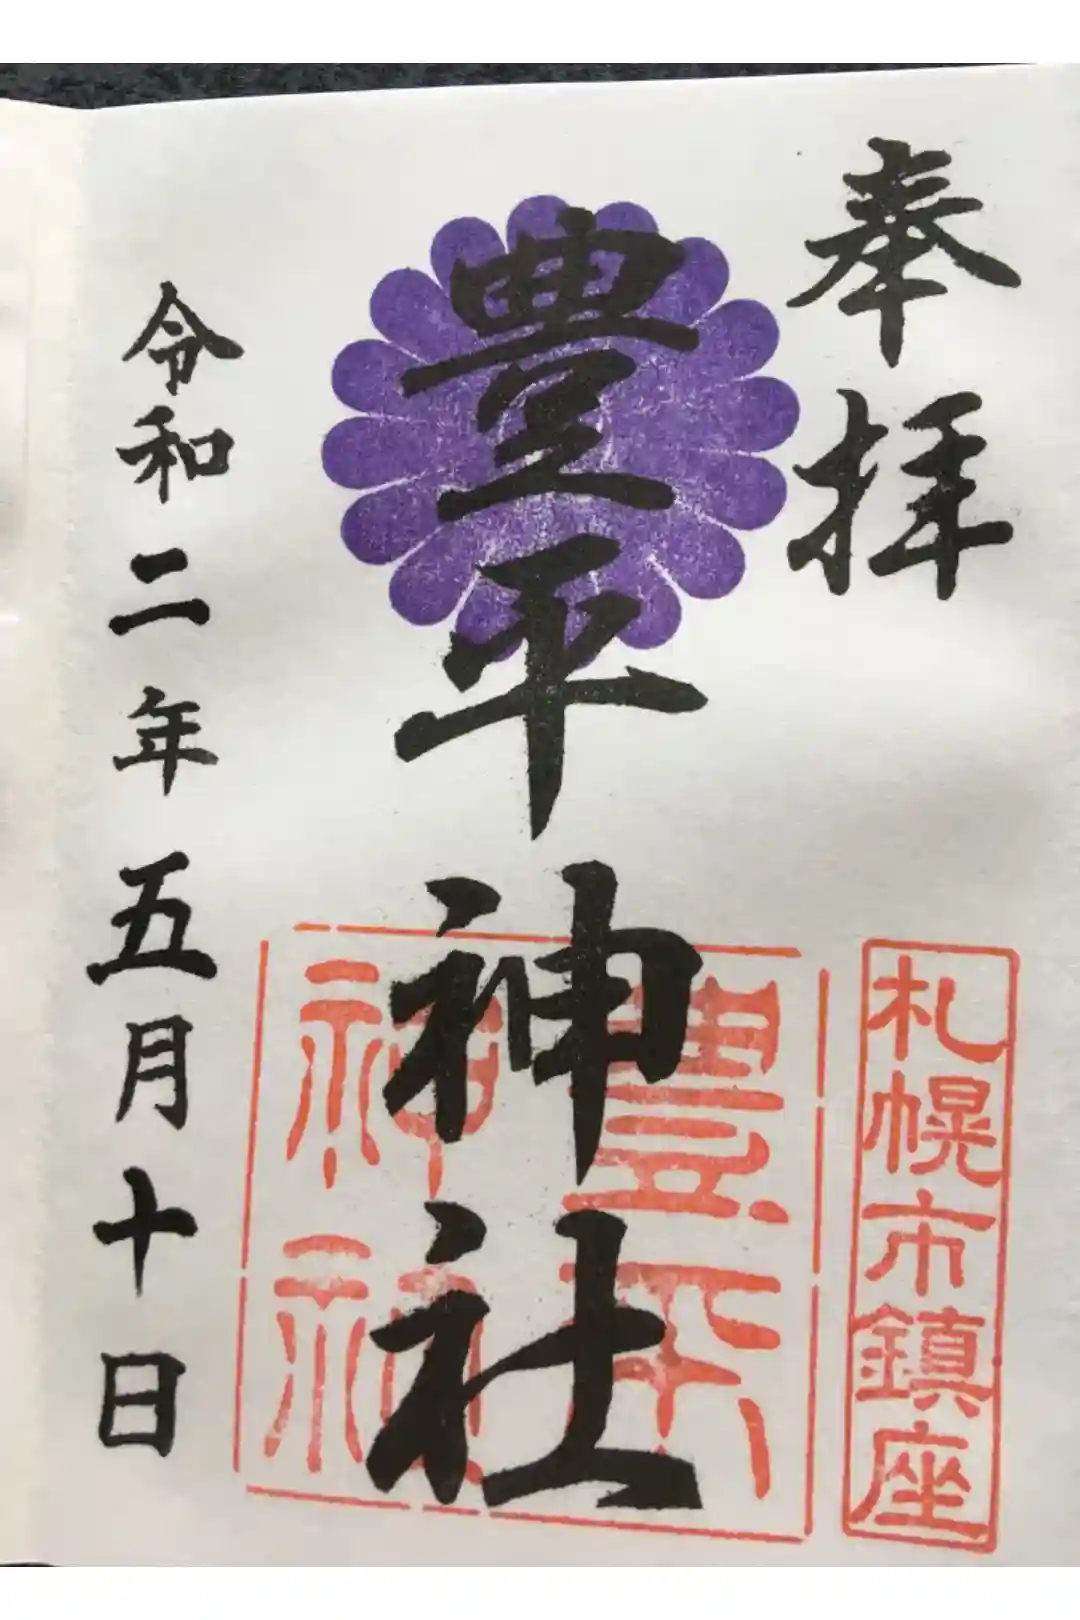 奉拝
札幌市鎮座
豊平神社
豊平
神社
令和二年五月十日